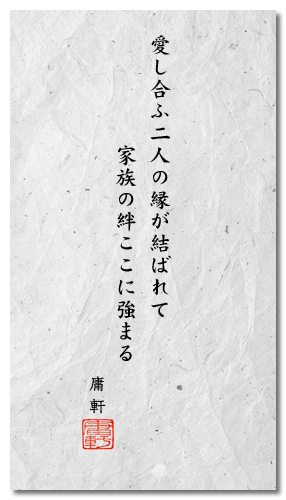 愛し合ふ二人の縁が結ばれて
家族の絆ここに強まる
庸軒
庸軒